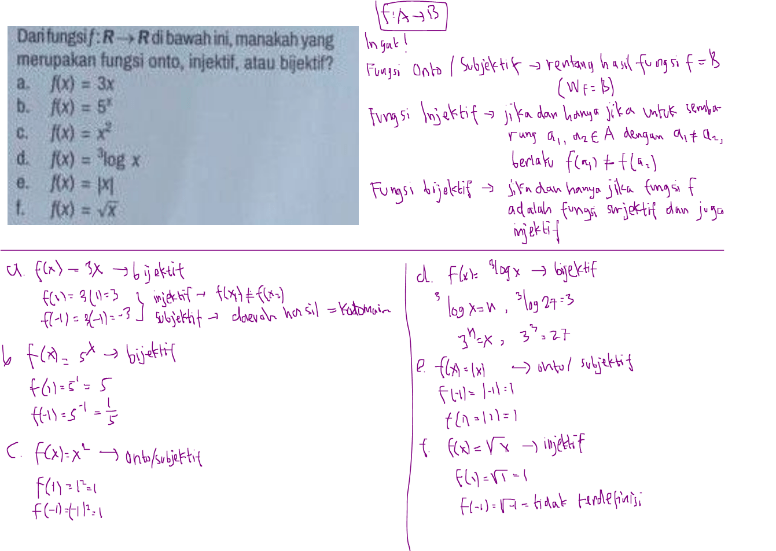 Dari fungsi f : R → R di bawah ini, manakah yang
merupakan fungsi onto, injektif, atau bijektif?
a. f(x) = 3x
b. f(x) = 5ˣ
c. f(x) = x²
d. f(x) = ³log x
e. f(x) = |x|
f. f(x) = √x
f: A → B
Ingat!
Fungsi Onto / Subjektif → rentang hasil fungsi f = B
(Wf = B)
Fungsi Injektif → jika dan hanya jika untuk semba-
rang a₁, a₂ ∈ A dengan a₁ ≠ a₂,
berlaku f(a₁) ≠ f(a₂)
Fungsi bijektif → jika dan hanya jika fungsi f
adalah fungsi surjektif dan juga
injektif
a. f(x) = 3x → bijektif
f(1) = 3(1) = 3 } injektif → f(x₁) ≠ f(x₂)
f(-1) = 3(-1) = -3 } subjektif → daerah hasil = Kodomain
b f(x) = 5ˣ → bijektif
f(1) = 5¹ = 5
f(-1) = 5⁻¹ = 1/5
C. f(x) = x² → Onto/subjektif
f(1) = 1² = 1
f(-1) = (-1)² = 1
d. f(x) = ³log x → bijektif
³log x = n, ³log 27 = 3
3ⁿ = x, 3³ = 27
e. f(x) = |x| → onto/ subjektif
f(-1) = |-1| = 1
f(1) = |1| = 1
f f(x) = √x → injektif
f(1) = √1 = 1
f(-1) = √-1 = tidak terdefinisi